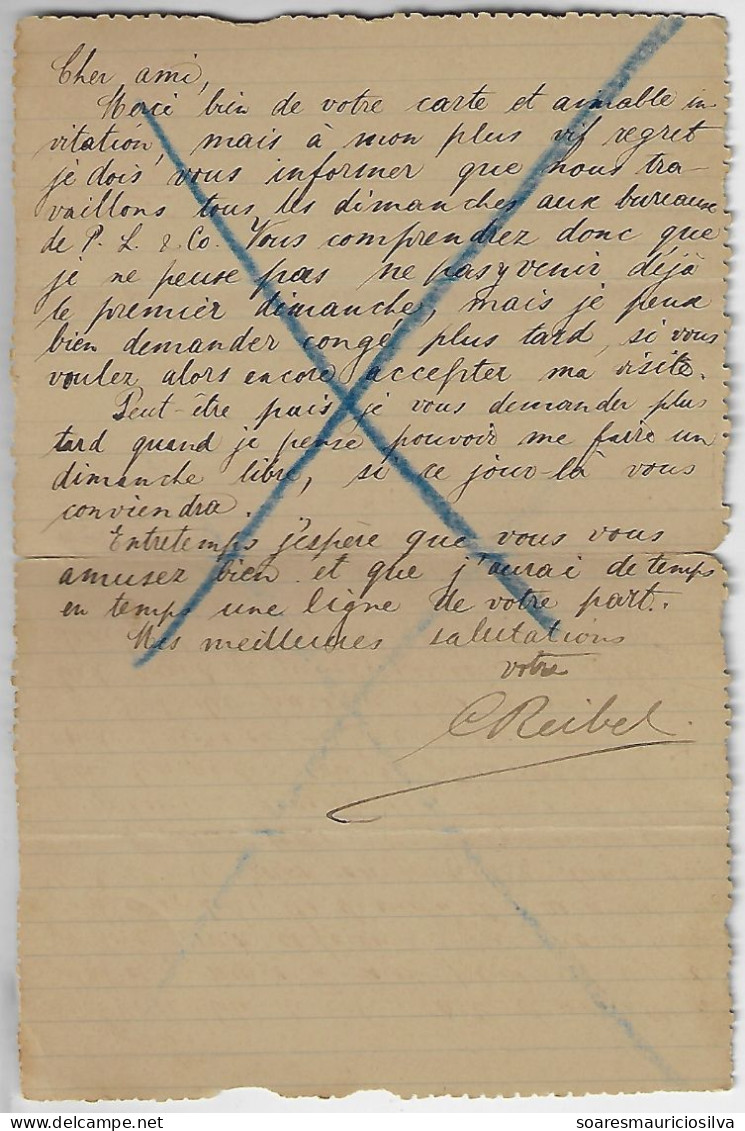 Cher ami,
Merci bien de votre carte et aimable in
vitation, mais à mon plus vif regret
je dois vous informer que nous tra-
vaillons tous les dimanches aux bureaux
de P. L. & Co. Vous comprendrez donc que
je ne peuse pas ne pas y venir déjà
le premier dimanche, mais je peux
bien demander congé plus tard, si vous
voulez alors encore accepter ma visite.
Peut-être puis je vous demander plus
tard quand je pense pouvoir me faire un
dimanche libre, si ce jour-là vous
conviendra.
Entretemps j'espère que vous vous
amusez bien et que j'aurai de temps
en temps une ligne de votre part.
Mes meilleures salutations
votre
C Reibel.
soaresmauriciosilva